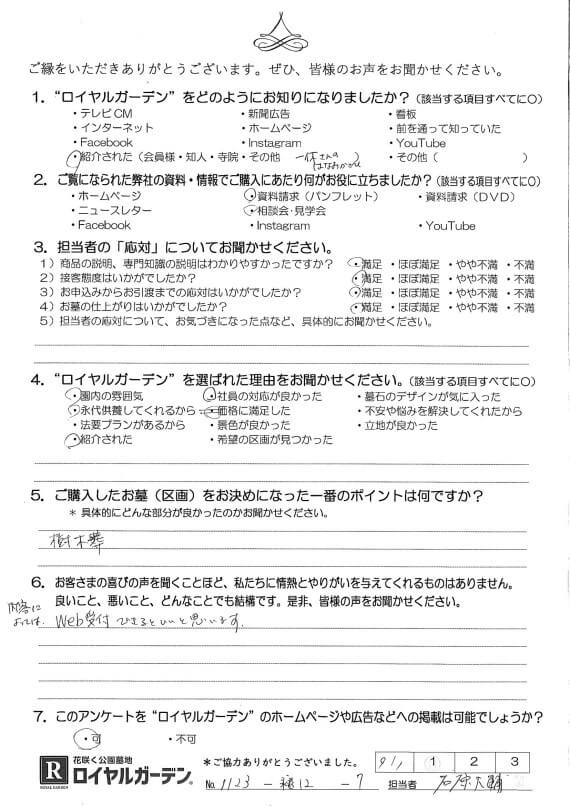 ご縁をいただきありがとうございます。ぜひ、皆様のお声をお聞かせください。
1. “ロイヤルガーデン”をどのようにお知りになりましたか？(該当する項目すべてに○)
・テレビCM ・新聞広告 ・看板
・インターネット ・ホームページ ・前を通って知っていた
・Facebook ・Instagram ・YouTube
・紹介された（会員様・知人・寺院・その他 一休さんのはなおかがん） ・その他（ ）
2. ご覧になられた弊社の資料・情報でご購入にあたり何がお役に立ちましたか？(該当する項目すべてに○)
・ホームページ ・資料請求（パンフレット） ・資料請求（DVD）
・ニュースレター ・相談会・見学会
・Facebook ・Instagram ・YouTube
3. 担当者の「応対」についてお聞かせください。
1）商品の説明、専門知識の説明はわかりやすかったですか？ ・満足 ・ほぼ満足 ・やや不満 ・不満
2）接客態度はいかがでしたか？ ・満足 ・ほぼ満足 ・やや不満 ・不満
3）お申込みからお引渡までの応対はいかがでしたか？ ・満足 ・ほぼ満足 ・やや不満 ・不満
4）お墓の仕上がりはいかがでしたか？ ・満足 ・ほぼ満足 ・やや不満 ・不満
5）担当者の応対について、お気づきになった点など、具体的にお聞かせください。
4. “ロイヤルガーデン”を選ばれた理由をお聞かせください。(該当する項目すべてに○)
・園内の雰囲気 ・社員の対応が良かった ・墓石のデザインが気に入った
・永代供養してくれるから ・価格に満足した ・不安や悩みを解決してくれたから
・法要プランがあるから ・景色が良かった ・立地が良かった
・紹介された ・希望の区画が見つかった
5. ご購入したお墓（区画）をお決めになった一番のポイントは何ですか？
＊ 具体的にどんな部分が良かったのかお聞かせください。
樹木葬
6. お客さまの喜びの声を聞くことほど、私たちに情熱とやりがいを与えてくれるものはありません。
良いこと、悪いこと、どんなことでも結構です。是非、皆様の声をお聞かせください。
内容によっては、Web受付できるといいと思います。
7. このアンケートを“ロイヤルガーデン”のホームページや広告などへの掲載は可能でしょうか？
・可 ・不可
R ROYAL GARDEN 花咲く公園墓地 ロイヤルガーデン®
＊ご協力ありがとうございました。 9/1 1 2 3
No. 1123 - 緑12 - 7 担当者 石原大輔